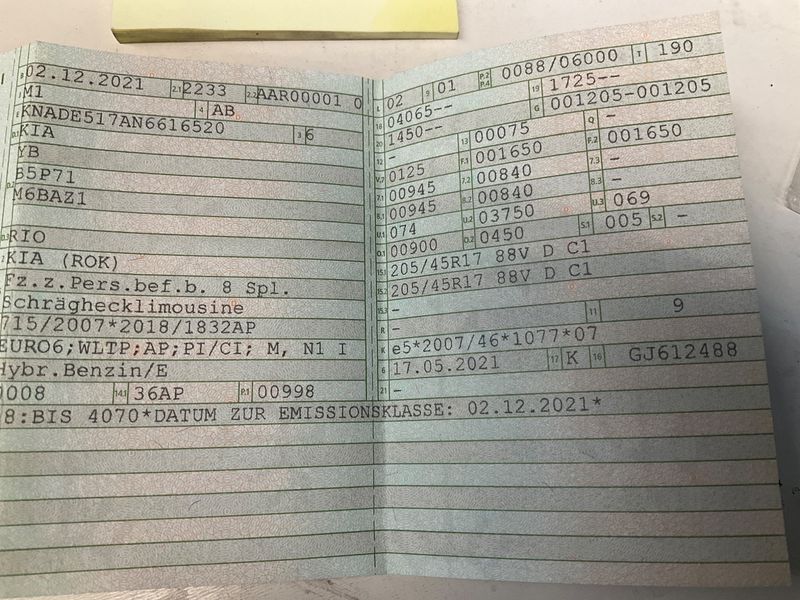 B 02.12.2021 2.1 2233 2.2 AAR00001 0
M1 4 AB
KNADE517AN6616520 3 6
KIA
YB
B5P71
M6BAZ1
RIO
KIA (ROK)
Fz.z.Pers.bef.b. 8 Spl.
Schräghecklimousine
715/2007*2018/1832AP
EURO6;WLTP;AP;PI/CI; M, N1 I
Hybr.Benzin/E
0008 14.1 36AP P.1 00998
8:BIS 4070*DATUM ZUR EMISSIONSKLASSE: 02.12.2021*
L 02 9 01 P.2 P.4 0088/06000 T 190
18 04065-- 19 1725--
20 1450-- G 001205-001205
12 - 13 00075 Q -
V.7 0125 F.1 001650 F.2 001650
7.1 00945 7.2 00840 7.3 -
8.1 00945 8.2 00840 8.3 -
U.1 074 U.2 03750 U.3 069
O.1 00900 O.2 0450 S.1 005 S.2 -
15.1 205/45R17 88V D C1
15.2 205/45R17 88V D C1
15.3 -
R - 11 9
K e5*2007/46*1077*07
6 17.05.2021 17 K 16 GJ612488
21 -